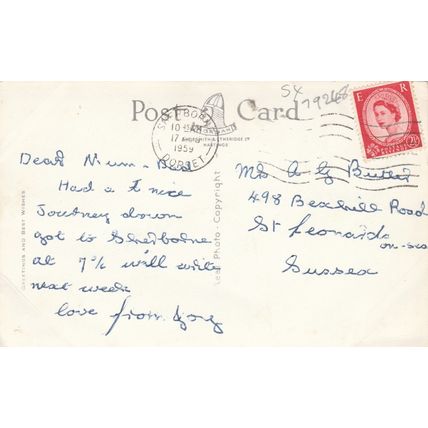 Post Card
54
79268
SHERBORNE
10 45 AM
17
1959
DORSET
SHOESMITH & ETHERIDGE LTD
HASTINGS
E R
POSTAGE REVENUE
2½D
Dear Mum - Dad
Had a nice
Journey down
got to Sherborne
at 7 will write
next week
love from
Mrs A G Butler
498 Bexhill Road
St Leonards
on-sea
Sussex
GREETINGS AND BEST WISHES
Real Photo - Copyright